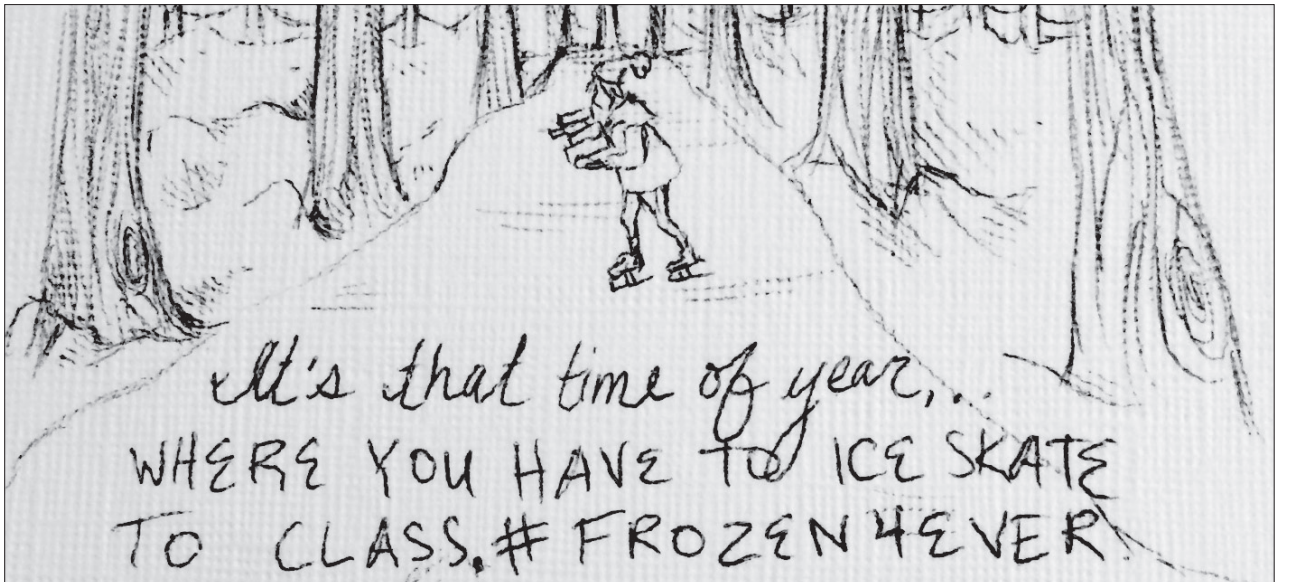 It's that time of year...
WHERE YOU HAVE TO ICE SKATE
TO CLASS.#FROZEN4EVER